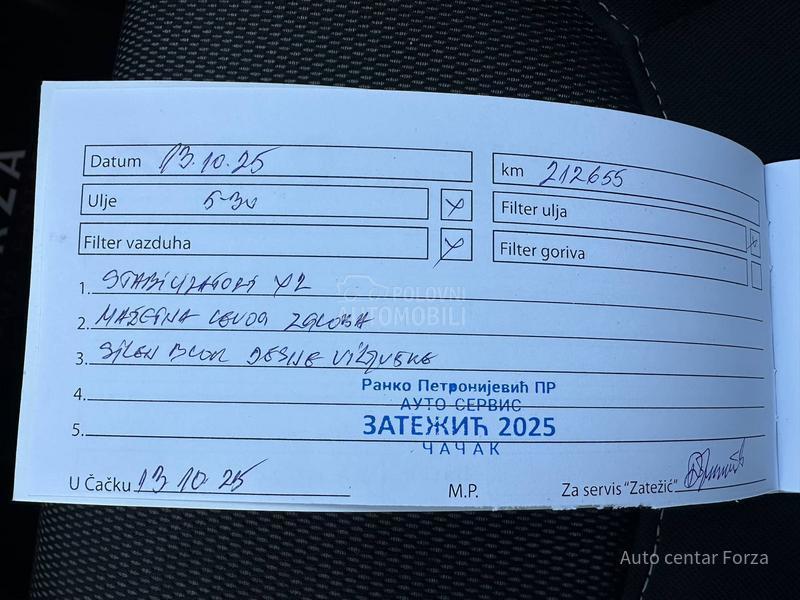 Datum 13.10.25
km 212655
Ulje 5-30 X
Filter ulja X
Filter vazduha X
Filter goriva
1. STABILIZATORI X2
2. MANŽETNA LEVOG ZGLOBA
3. SILEN BLOK DESNE VILJUŠKE
4.
5.
Ранко Петронијевић ПР
АУТО СЕРВИС
ЗАТЕЖИЋ 2025
ЧАЧАК
U Čačku 13 10 25
M.P.
Za servis "Zatežić"
POLOVNI
AUTOMOBILI
Auto centar Forza